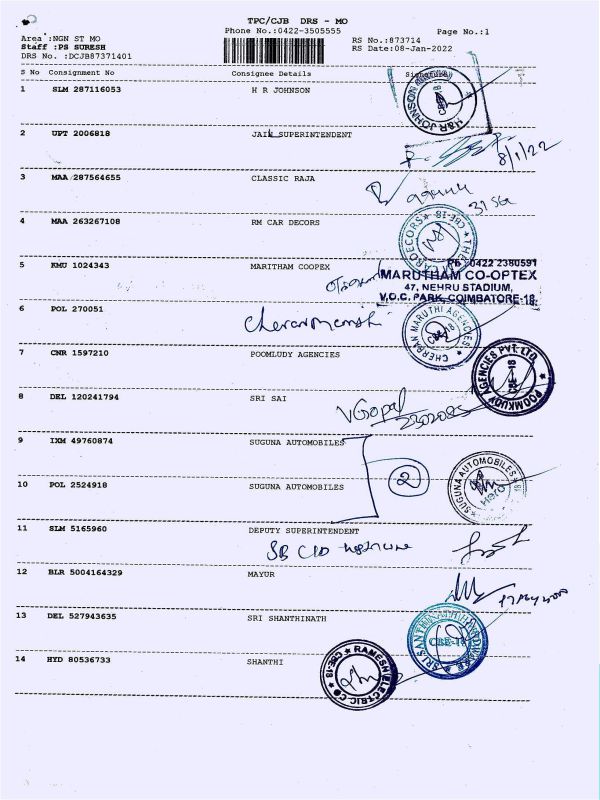 TPC/CJB DRS - MO
Phone No.:0422-3505555 Page No.:1
Area :NGN ST MO RS No.:873714
Staff :PS SURESH RS Date:08-Jan-2022
DRS No. :DCJB87371401
S No Consignment No Consignee Details Signature
1 SLM 287116053 H R JOHNSON
H&R JOHNSON
2 UPT 2006818 JAIL SUPERINTENDENT
8/1/22
3 MAA 287564655 CLASSIC RAJA
4 MAA 263267108 RM CAR DECORS
CBE-18 ★ THE
5 KMU 1024343 MARITHAM COOPEX
Ph : 0422 2380591
MARUTHAM CO-OPTEX
47, NEHRU STADIUM,
V.O.C. PARK, COIMBATORE-18.
6 POL 270051
CHERRAN MARUTHI AGENCIES
7 CNR 1597210 POOMLUDY AGENCIES
POOMKUDY AGENCIES PVT. LTD. CBE-18
8 DEL 120241794 SRI SAI
VGopal
9 IXM 49760874 SUGUNA AUTOMOBILES
2
10 POL 2524918 SUGUNA AUTOMOBILES
SUGUNA AUTOMOBILES
11 SLM 5165960 DEPUTY SUPERINTENDENT
SB CID
12 BLR 5004164329 MAYUR
13 DEL 527943635 SRI SHANTHINATH
CBE-1
14 HYD 80536733 SHANTHI
RAMESH ELECTRIC CO ★ CBE-18